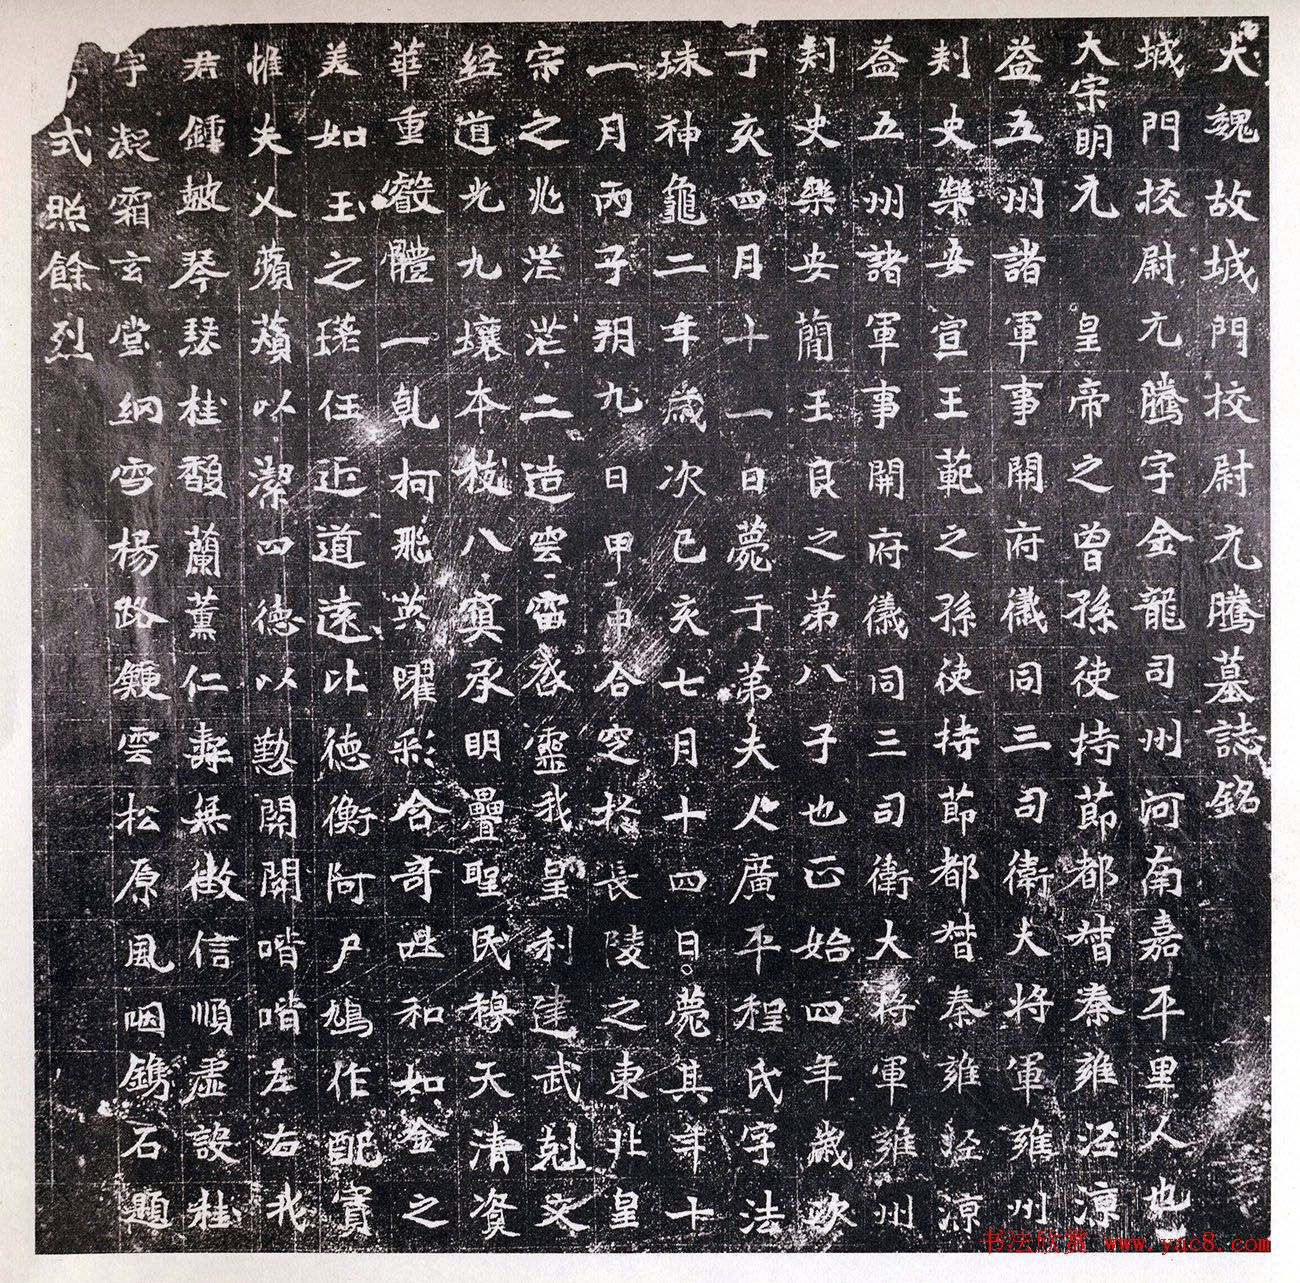 大魏故城門校尉元騰墓誌銘
城門校尉元騰字金龍司州河南嘉平里人也
大宗明元　皇帝之曾孫使持節都督秦雍涇涼
益五州諸軍事開府儀同三司衛大將軍雍州
刺史樂安宣王範之孫使持節都督秦雍涇涼
益五州諸軍事開府儀同三司衛大將軍雍州
刺史樂安簡王良之第八子也正始四年歲次
丁亥四月十一日薨于第夫人廣平程氏字法
珠神龜二年歲次己亥七月十四日薨其年十
一月丙子朔九日甲申合窆於長陵之東北皇
宗之兆茫茫二造雲雷啓靈我皇利建武剋文
經道光九壤本枝八寞承明疊聖民穆天清資
華重叡體一乹柯飛英曜彩含奇邕和如金之
美如玉之瑛任近道遠比德衡阿尸鳩作配實
惟夫人蘋蘩以潔四德以懃開開喈喈左右我
君鍾皷琴瑟桂馥蘭薰仁壽無徵信順虛設桂
宇凝霜玄堂網雪楊路鏁雲松原風咽鐫石題
式照餘烈
书法欣赏 www.yac8.com